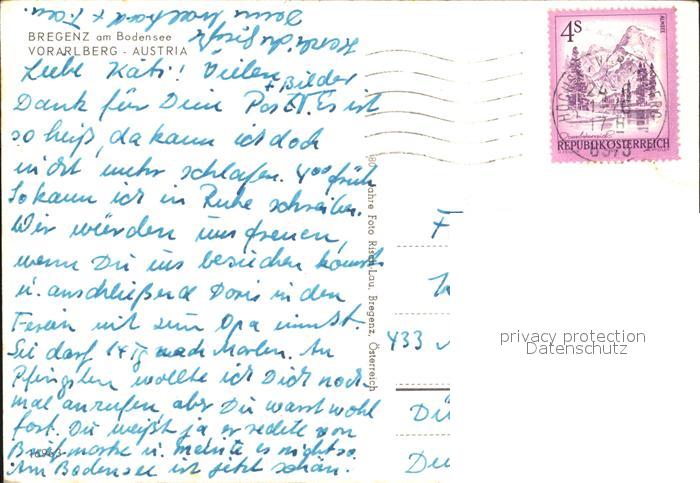 BREGENZ am Bodensee
VORARLBERG - AUSTRIA
Liebe Käti! Vielen
+ Bilder
Dank für Dein Post. Es ist
so heiß, da kann ich doch
nicht mehr schlafen. 4⁰⁰ früh
So kann ich in Ruhe schreiben.
Wir würden uns freuen,
wenn Du uns besuchen kannst
u. anschließend Doris in den
Ferien mit zum Opa nimmst.
Sie darf 14 Tg nach Marlen. An
Pfingsten wollte ich Dich noch
mal anrufen, aber Du warst wohl
fort. Du weißt ja er redete von
Briefmarke u. meinte es nicht so.
Am Bodensee ist jetzt schön.
Herzliche Grüße
Deine
80 Jahre Foto Risch-Lau, Bregenz, Österreich
4S
ALMSEE
REPUBLIK ÖSTERREICH
433
Dü
privacy protection
Datenschutz